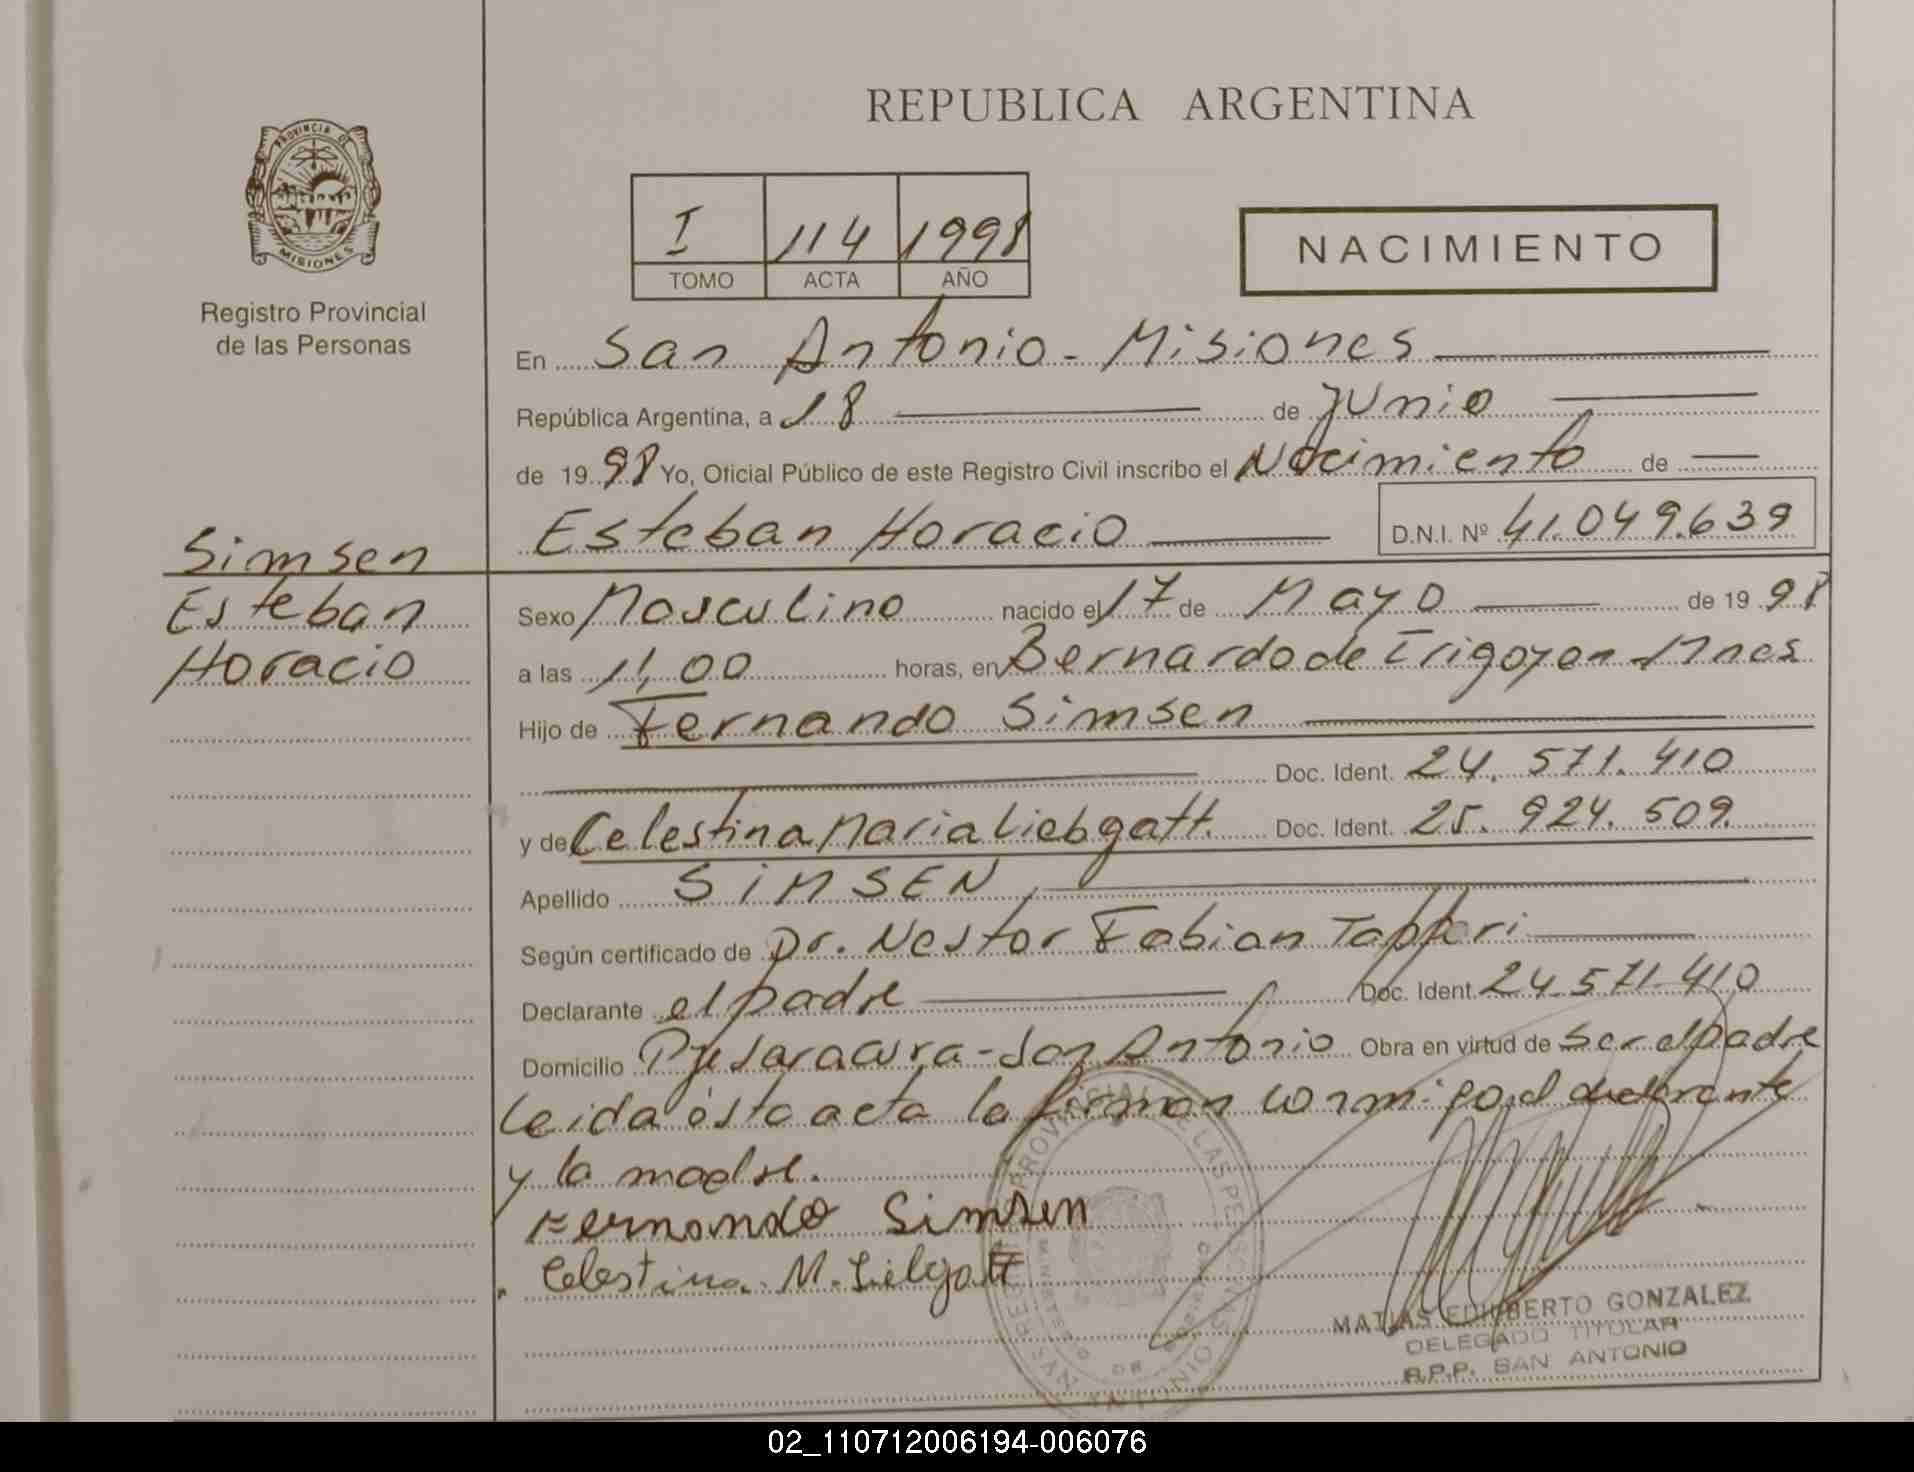 REPUBLICA ARGENTINA
PROVINCIA DE
MISIONES
Registro Provincial
de las Personas
I 114 1998
TOMO ACTA AÑO
NACIMIENTO
En San Antonio - Misiones
República Argentina, a 18 de Junio
de 19 98 Yo, Oficial Público de este Registro Civil inscribo el Nacimiento de
Esteban Horacio D.N.I. Nº 41.049.639
Simsen
Esteban
Horacio
Sexo Masculino nacido el 17 de Mayo de 19 98
a las 11,00 horas, en Bernardo de Irigoyen Mnes
Hijo de Fernando Simsen
Doc. Ident. 24.571.410
y de Celestina Maria Liebgott. Doc. Ident. 25.924.509.
Apellido SIMSEN
Según certificado de Dr. Nestor Fabian
Declarante el padre Doc. Ident. 24.571.410
Domicilio Pje Saracura - San Antonio Obra en virtud de ser el padre
Leida ésta acta la firman conmigo el declarante
y la madre.
Fernando Simsen
Celestina M.
MATIAS EDILBERTO GONZALEZ
DELEGADO TITULAR
R.P.P. SAN ANTONIO
02_110712006194-006076